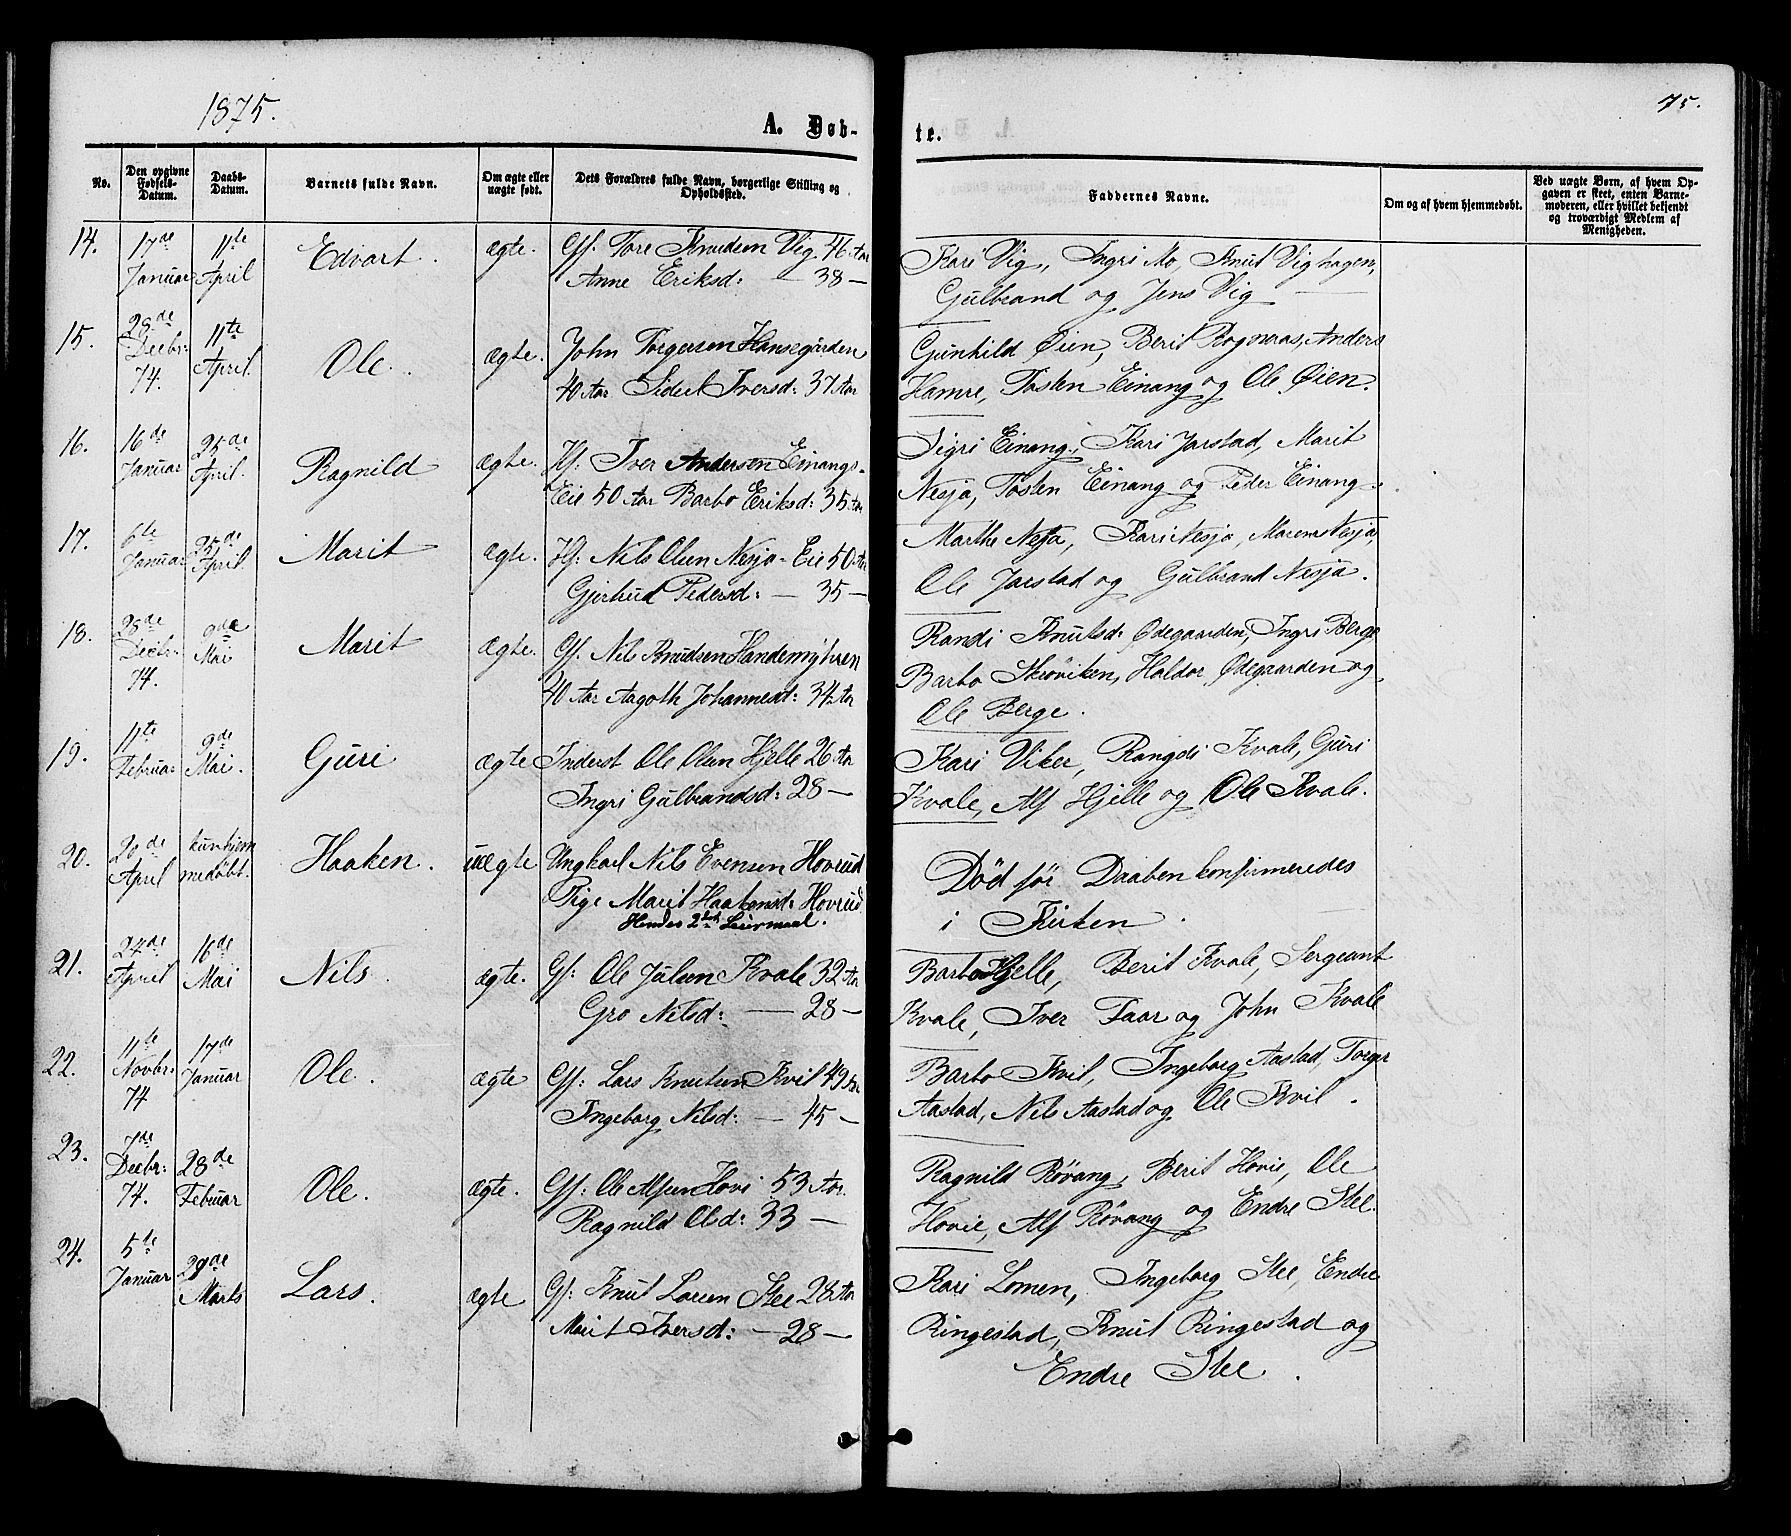 1875.
75.
A. Døb-
te.
No.
Den opgivne Fødsels-Datum.
Daabs-Datum.
Barnets fulde Navn.
Om ægte eller uægte født.
Dets Forældres fulde Navn, borgerlige Stilling og Opholdssted.
Faddernes Navne.
Om og af hvem hjemmedøbt.
Ved uægte Børn, af hvem Op-
gaven er skeet, enten Barne-
moderen, eller hvilket bekjendt
og troværdigt Medlem af
Menigheden.
14. 17de Januar 11te April Edvart. ægte. Gf. Tore Knudsen Vig. 46 Aar
Anne Eriksd: — 38 —
Kari Vig, Ingri Mo, Knut Vighagen,
Gulbrand og Jens Vig
15. 28de Decbr: 74. 11te April. Ole. ægte. John Torgersen Hansegården
40 Aar Sidsel Iversd: 37 Aar
Gunhild Øien, Berit Rognaas, Anders
Hamre, Tosten Einang og Ole Øien.
16. 16de Januar 25de April. Ragnild ægte. Hf: Iver Andersen Einangs-
Eie 50 Aar Barbo Eriksd: 35 Aar
Sigri Einang, Kari Jarstad, Marit
Nesja, Tosten Einang og Peder Einang
17. 6te Januar 25de April Marit ægte. Hf: Nils Olsen Nesja-Eie 50 Aar
Gjertrud Pedersd: — 35 —
Marthe Nesja, Kari Nesja, Maren Nesja,
Ole Jarstad og Gulbrand Nesja.
18. 28de Decbr: 74. 9de Mai Marit ægte. Gf. Nils Knudsen Handemyhren
40 Aar Aagoth Johannesd: 34 Aar
Randi Knutsd: Ødegaarden, Ingri Berge
Barbo Skrøviken, Haldor Ødegaarden og
Ole Berge.
19. 11te Februar 9de Mai. Guri ægte Inderst Ole Olsen Hjelle 26 Aar
Ingri Gulbrandsd: 28 —
Kari Viker, Rangdi Kvale, Guri
Kvale, Alf Hjelle og Ole Kvale.
20. 20de April kun hjem
medøbt. Haaken. uægte Ungkarl Nils Evensen Hovrud
Pige Marit Haakensd: Hovrud
Hendes 2det Leiermaal.
Død før Daaben konfirmeredes
i Kirken.
21. 24de April 16de Mai Nils. ægte. Gf: Ole Julsen Kvale 32 Aar
Gro Nilsd: — 28 —
Barbo Hjelle, Berit Kvale, Sergeant
Kvale, Iver Faar og John Kvale
22. 11te Novbr: 74 17de Januar Ole. ægte Gf: Lars Knutsen Kvil 49 Aar
Ingeborg Nilsd: — 45 —
Barbo Kvil, Ingeborg Aastad, Torger
Aastad, Nils Aastad og Ole Kvil.
23. 7de Decbr: 74. 28de Februar Ole. ægte. Gf: Ole Alfsen Hovi 53 Aar.
Ragnild Olsd: 33 —
Ragnild Røvang, Berit Hovie, Ole
Hovie, Alf Røvang og Endre Stee.
24. 5te Januar 29de Marts Lars. ægte Gf: Knut Larsen Stee 28 Aar
Marit Iversd: — 28 —
Kari Lomen, Ingeborg Stee, Endre
Ringestad, Knut Ringestad og
Endre Stee.